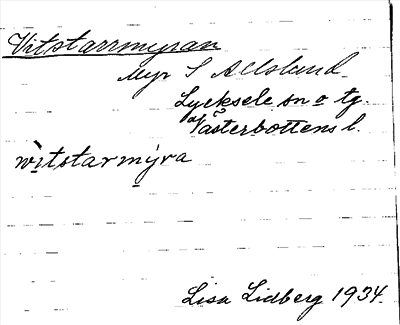 Vitstarrmyran
Myr S Allslund
Lycksele sn o tg.
Västerbottens l.
wìtstarmýra
Lisa Lidberg 1934.